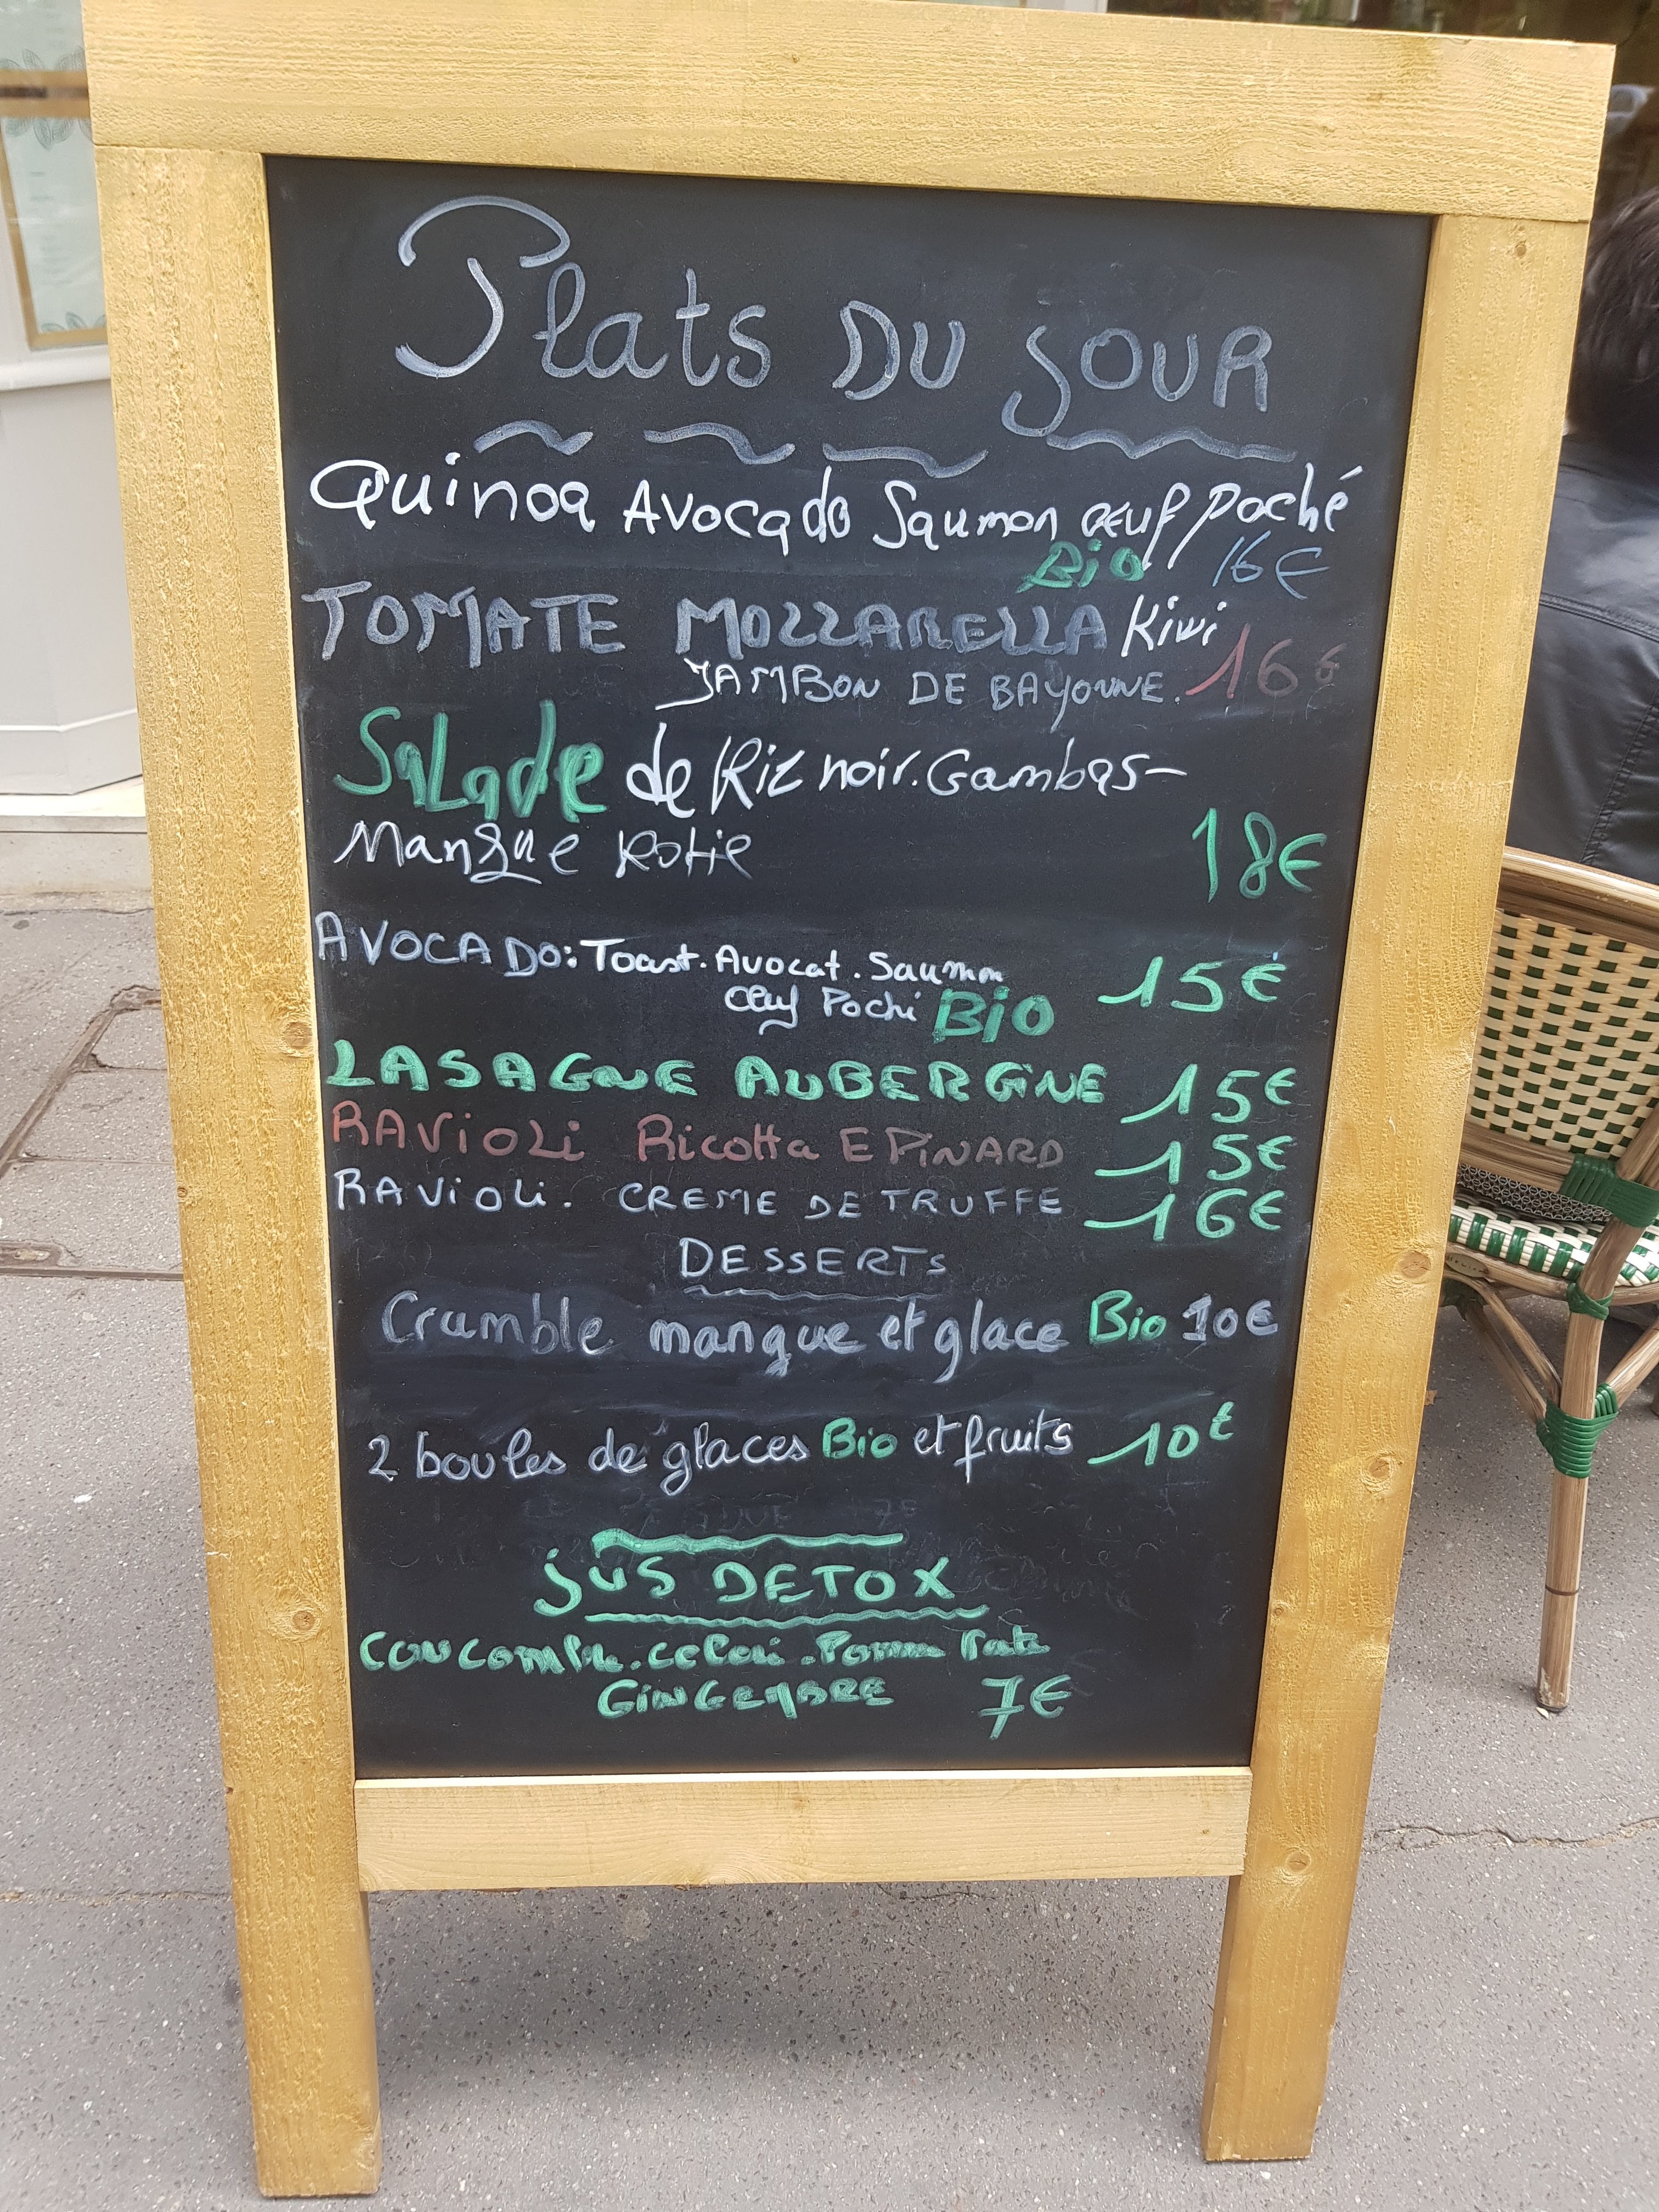 Plats DU JOUR
Quinoa Avocado Saumon œuf poché
Bio 16€
TOMATE MOZZARELLA Kiwi
JAMBON DE BAYONNE. 16€
Salade de Riz noir. Gambas-
Mangue Rotie 18€
AVOCADO: Toast. Avocat. Saumon
œuf Poché Bio 15€
LASAGNE AUBERGINE 15€
RAViOLi Ricotta EPiNARD 15€
RAViOLi. CREME DE TRUFFE 16€
DESSERTS
Crumble mangue et glace Bio 10€
2 boules de glaces Bio et fruits 10€
jUS DETOX
CONCOMBRE. celeri. Pomme
GiNGEMBRE 7€